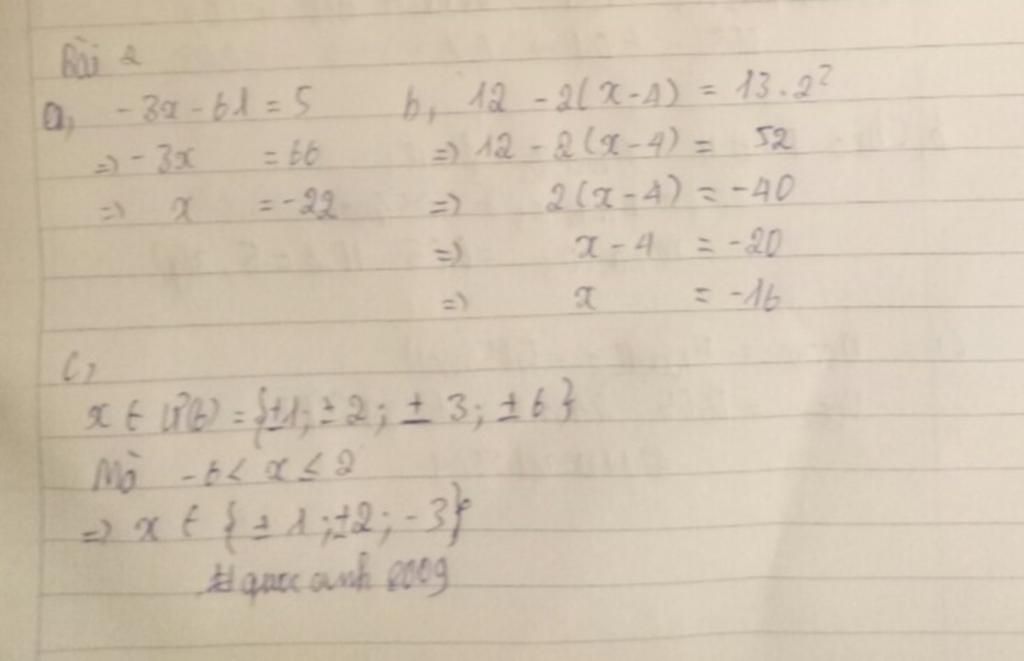 Bài 2
a, -3x - 61 = 5 b, 12 - 2(x - 4) = 13 . 2²
=> -3x = 66 => 12 - 2(x - 4) = 52
=> x = -22 => 2(x - 4) = -40
=> x - 4 = -20
=> x = -16
c,
x ∈ Ư(6) = {±1; ±2; ±3; ±6}
Mà -6 < x ≤ 2
=> x ∈ {±1; ±2; -3}
#quoc anh 2009